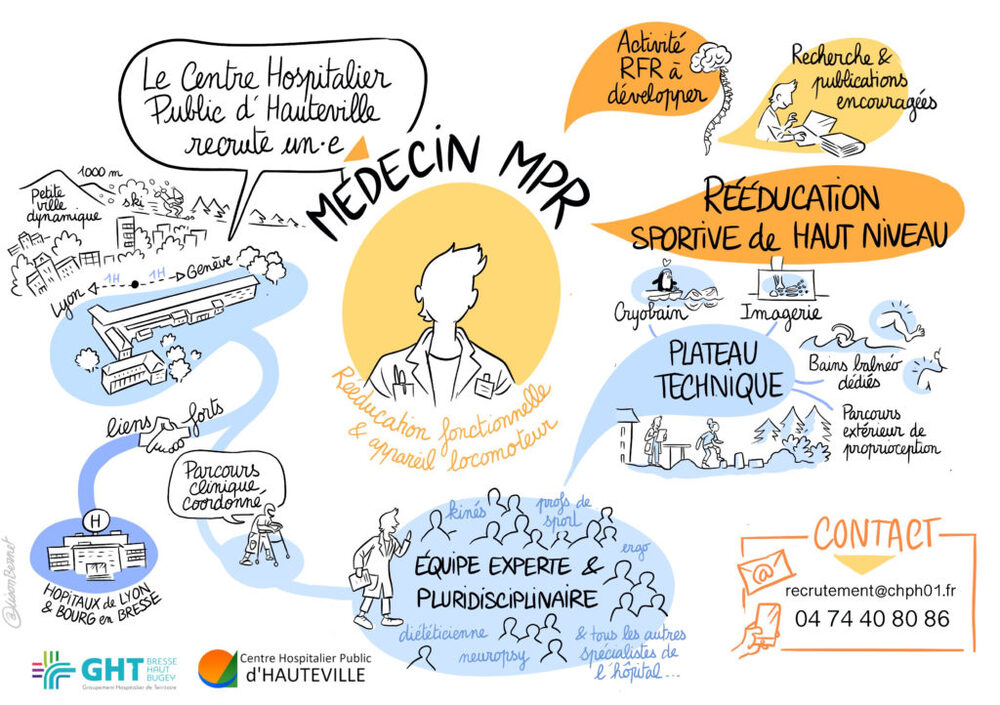 Le Centre Hospitalier
Public d'Hauteville
recrute un·e
MÉDECIN MPR
Rééducation fonctionnelle
& appareil locomoteur
1000 m
ski
Petite
ville
dynamique
Lyon
1H
1H
Genève
liens forts
H
HOPITAUX de LYON
& BOURG en BRESSE
Parcours
clinique
coordonné
Activité
RFR à
développer
Recherche &
publications
encouragées
RÉÉDUCATION
SPORTIVE de HAUT NIVEAU
Cryobain
Imagerie
PLATEAU
TECHNIQUE
Bains balnéo
dédiés
Parcours
extérieur de
proprioception
kinés
profs de
sport
ergo
ÉQUIPE EXPERTE &
PLURIDISCIPLINAIRE
diététicienne
neuropsy
& tous les autres
spécialistes de
l'hôpital...
CONTACT
@
recrutement@chph01.fr
04 74 40 80 86
GHT
BRESSE
HAUT
BUGEY
Groupement Hospitalier de Territoire
Centre Hospitalier Public
d'HAUTEVILLE